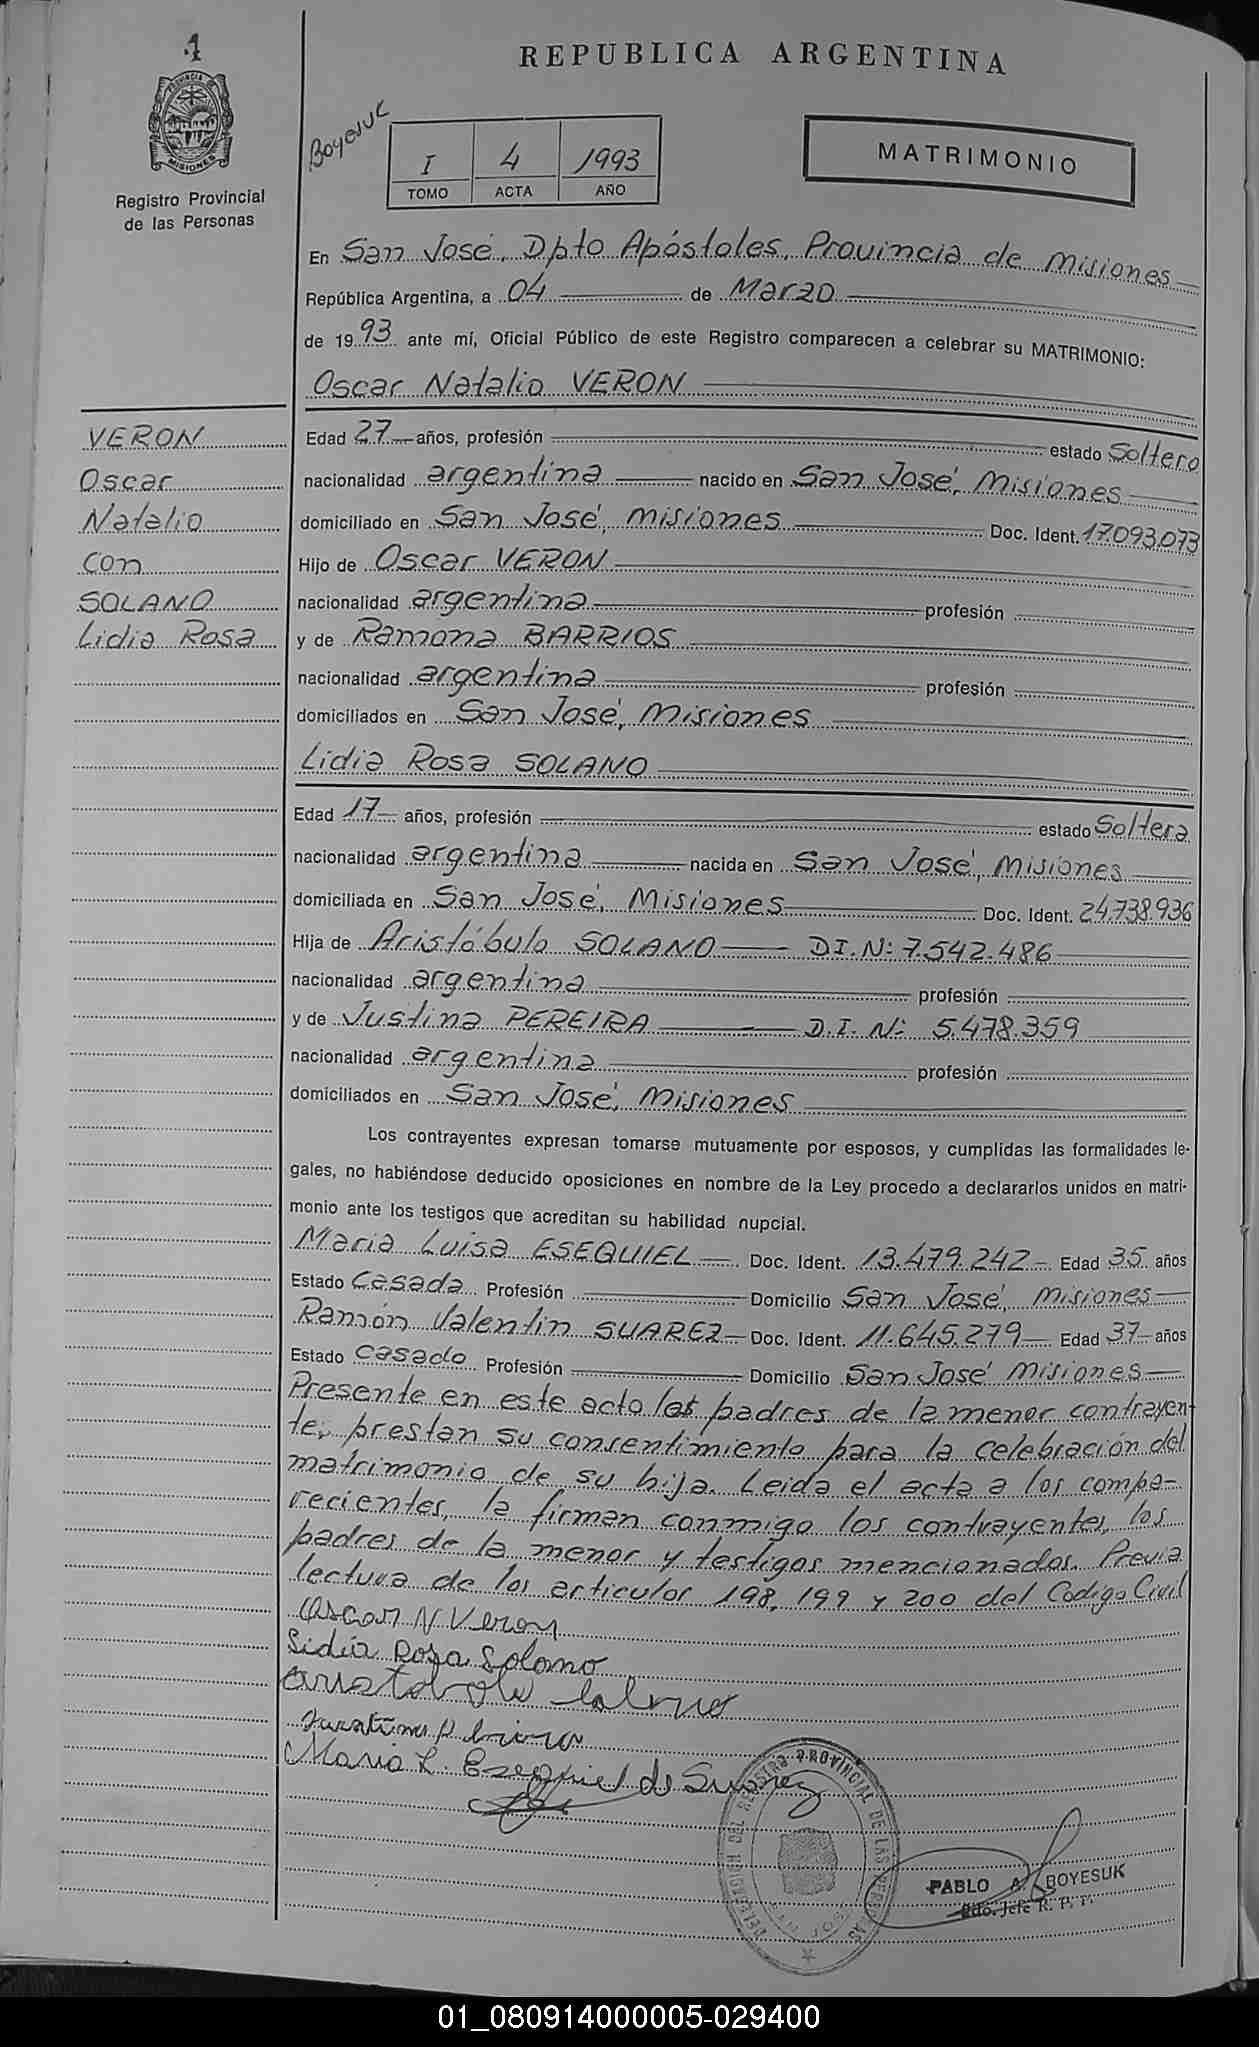 1
REPUBLICA ARGENTINA
PROVINCIA
MISIONES
Registro Provincial
de las Personas
Boyesuk
I 4 1993
TOMO ACTA AÑO
MATRIMONIO
En San José, Dpto Apóstoles, Provincia de Misiones
República Argentina, a 04 de Marzo
de 1993 ante mí, Oficial Público de este Registro comparecen a celebrar su MATRIMONIO:
Oscar Natalio VERON
VERON
Oscar
Natalio
con
SOLANO
Lidia Rosa
Edad 27 años, profesión estado Soltero
nacionalidad argentina nacido en San José, Misiones
domiciliado en San José, Misiones Doc. Ident. 17.093.073
Hijo de Oscar VERON
nacionalidad argentina profesión
y de Ramona BARRIOS
nacionalidad argentina profesión
domiciliados en San José, Misiones
Lidia Rosa SOLANO
Edad 17 años, profesión estado Soltera
nacionalidad argentina nacida en San José, Misiones
domiciliada en San José, Misiones Doc. Ident. 24.738.936
Hija de Aristóbulo SOLANO D.I. N: 7.542.486
nacionalidad argentina profesión
y de Justina PEREIRA D.I. N: 5.478.359
nacionalidad argentina profesión
domiciliados en San José, Misiones
Los contrayentes expresan tomarse mutuamente por esposos, y cumplidas las formalidades le-
gales, no habiéndose deducido oposiciones en nombre de la Ley procedo a declararlos unidos en matri-
monio ante los testigos que acreditan su habilidad nupcial.
Maria Luisa ESEQUIEL Doc. Ident. 13.479.242 Edad 35 años
Estado Casada Profesión Domicilio San José, Misiones
Ramón Valentin SUAREZ Doc. Ident. 11.645.279 Edad 37 años
Estado Casado Profesión Domicilio San José Misiones
Presente en este acto los padres de la menor contrayen
te, prestan su consentimiento para la celebración del
matrimonio de su hija. Leida el acta a los compa-
recientes, la firman conmigo los contrayentes, los
padres de la menor y testigos mencionados. Previa
lectura de los articulos 198, 199 y 200 del Codigo Civil
Oscar N Veron
Lidia Rosa Solano
Maria L. Ezequiel de Suarez
DELEGACION DEL REGISTRO PROVINCIAL DE LAS PERSONAS
SAN JOSE
PABLO A. BOYESUK
Jefe R. P. P.
01_080914000005-029400